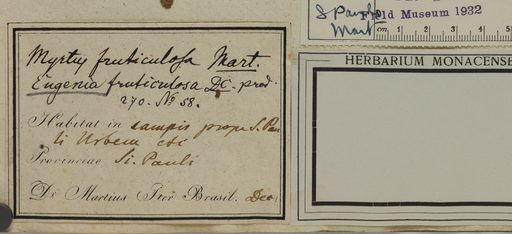 Myrtus fruticulosa Mart.
Eugenia fruticulosa DC. prod.
270. No 58.
Habitat in campis prope S. Pau
li Urbem etc
Provinciae Si. Pauli
Dr Martius Iter Brasil. Dec
S Paulo
Field Museum 1932
Mart
cm 1 2 3 4 5
HERBARIUM MONACENSE